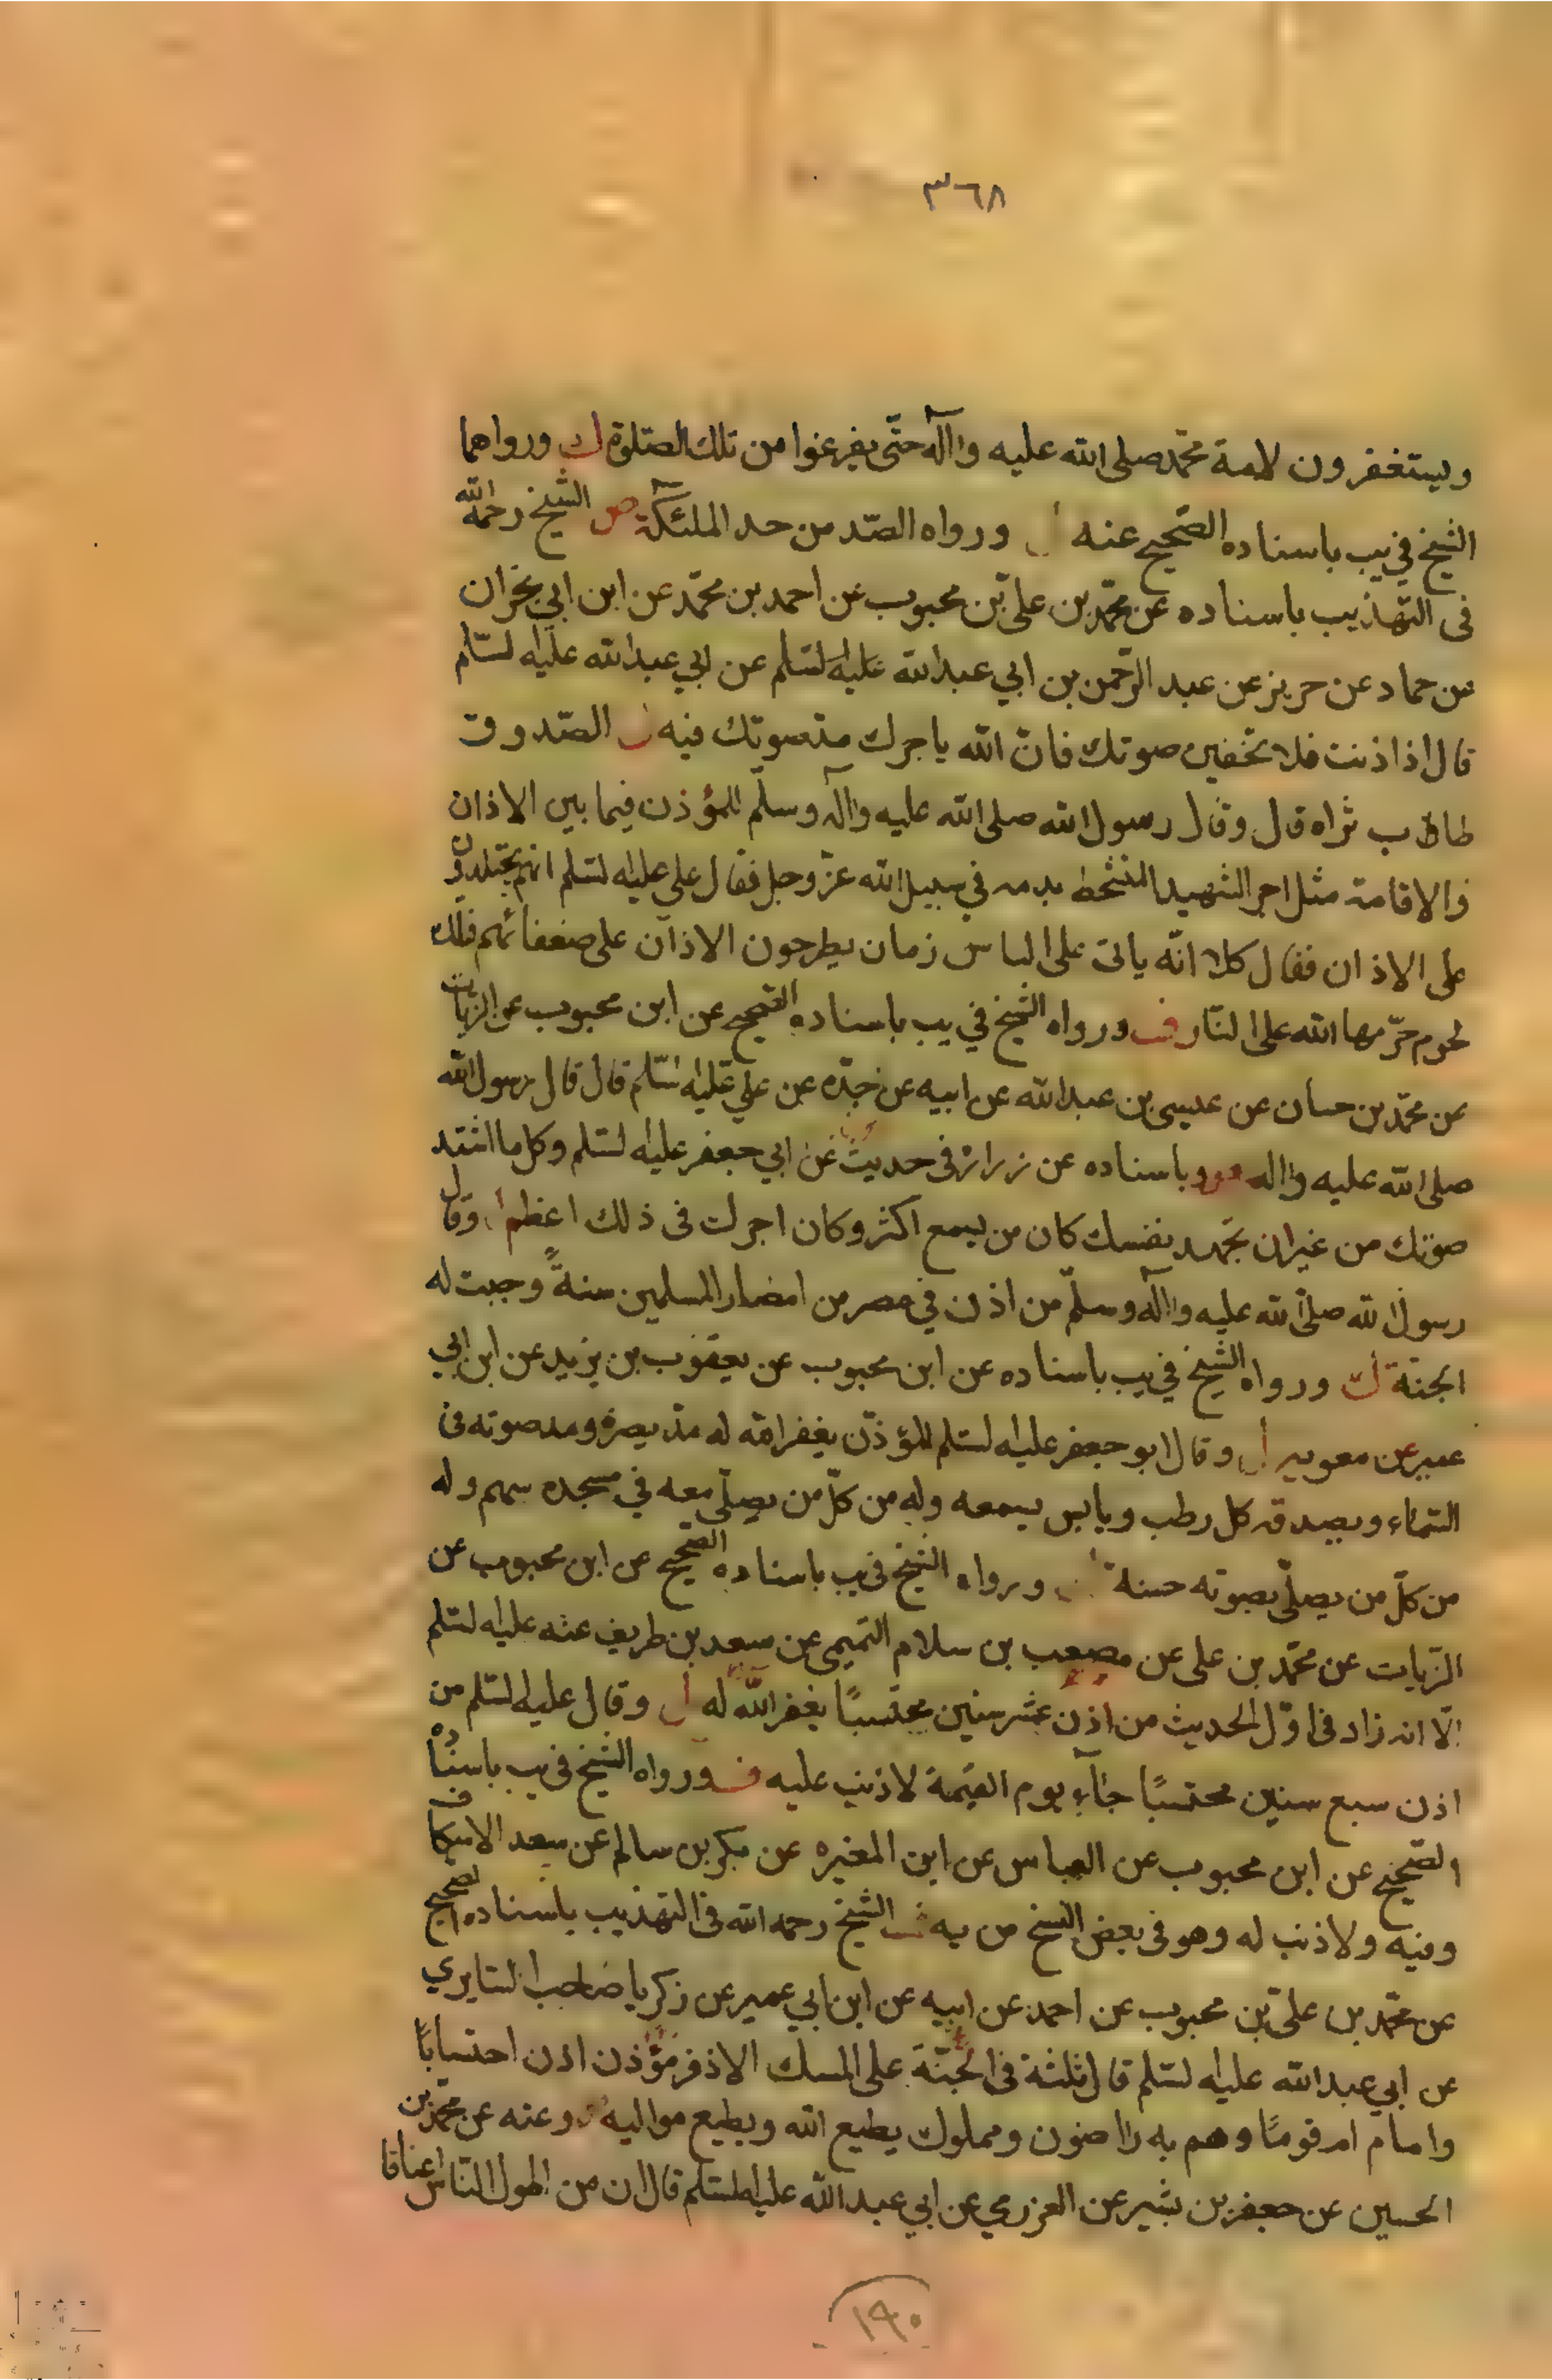 ٣٦٨
ويستغفرون لامة محمد صلى الله عليه واله حتى يفرغوا من تلك الصلوة ورواهما
الشيخ في يب باسناده الصحيح عنه ورواه الصد من حد الملئكة ص الشيخ رحمه الله
فى التهذيب باسناده عن محمد بن على بن محبوب عن احمد بن محمد عن ابن ابي نجران
عن حماد عن حريز عن عبد الرحمن بن ابي عبد الله عليه السلم عن ابي عبد الله عليه السلام
قال اذا اذنت فلا تخفين صوتك فان الله ياجرك مد صوتك فيه الصدوق
طاب ثراه قال وقال رسول الله صلى الله عليه واله وسلم للمؤذن فيما بين الاذان
والاقامة مثل اجر الشهيد المتشحط بدمه في سبيل الله عز وجل فقال على عليه السلم انهم يجتلدون
على الاذان فقال كلا انه ياتى على الناس زمان يطرحون الاذان على ضعفائهم فتلك
لحوم حرمها الله على النار ورواه الشيخ في يب باسناده الصحيح عن ابن محبوب عن الزيات
عن محمد بن حسان عن عيسى بن عبد الله عن ابيه عن جده عن علي عليه السلم قال قال رسول الله
صلى الله عليه واله وباسناده عن زرارة فى حديث عن ابي جعفر عليه السلم وكل ما اشتد
صوتك من غير ان تجهد نفسك كان من يسمع اكثر وكان اجرك فى ذلك اعظم وقال
رسول الله صلى الله عليه واله وسلم من اذن في مصر من امصار المسلمين سنة وجبت له
الجنة ورواه الشيخ في يب باسناده عن ابن محبوب عن يعقوب بن يزيد عن ابن ابي
عمير عن معويه وقال ابو جعفر عليه السلم للمؤذن يغفر الله له مد بصره ومد صوته فى
السماء ويصدقه كل رطب ويابس يسمعه وله من كل من يصلى معه في مسجده سهم وله
من كل من يصلى بصوته حسنة ورواه الشيخ فى يب باسناده الصحيح عن ابن محبوب عن
الزيات عن محمد بن على عن مصعب بن سلام التميمى عن سعد بن طريف عنه عليه السلم
الا انه زاد فى اول الحديث من اذن عشر سنين محتسبا يغفر الله له وقال عليه السلم من
اذن سبع سنين محتسبا جاء يوم القيمة لا ذنب عليه ورواه الشيخ فى يب باسناده
الصحيح عن ابن محبوب عن العباس عن ابن المغيره عن بكر بن سالم عن سعد الاسكاف
وفيه ولا ذنب له وهو فى بعض النسخ من يه الشيخ رحمه الله فى التهذيب باسناده الصحيح
عن محمد بن على بن محبوب عن احمد عن ابيه عن ابن ابي عمير عن زكريا صاحب السابري
عن ابي عبد الله عليه السلم قال ثلثة فى الجنة على المسك الاذفر مؤذن اذن احتسابا
وامام ام قوما وهم به راضون ومملوك يطيع الله ويطيع مواليه وعنه عن محمد بن
الحسين عن جعفر بن بشير عن العزرمي عن ابي عبد الله عليه السلم قال ان من اطول الناس اعناقا
١٩٠